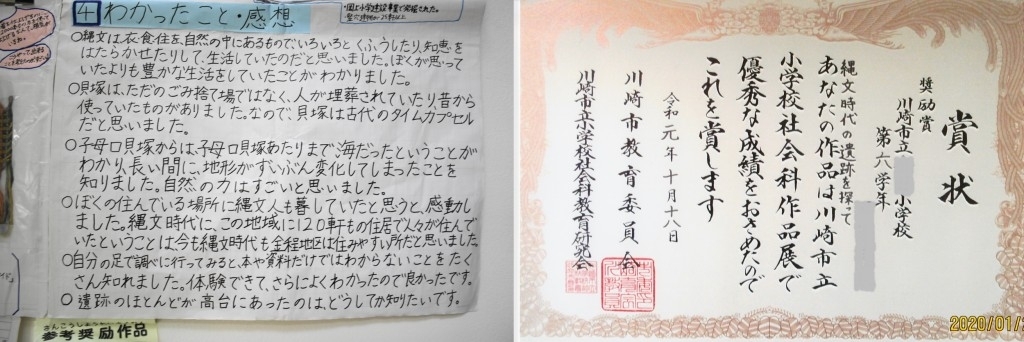 4 わかったこと・感想
・国立小学建設事業で発掘された。
○縄文は衣食住を、自然の中にあるものでいろいろとくふうしたり、知恵を
はたらかせたりして、生活していたのだと思いました。ぼくが思って
いたよりも豊かな生活をしていたことがわかりました。
○貝塚は、ただのごみ捨て場ではなく、人が埋葬されていたり昔から
使っていたものがありました。なので、貝塚は古代のタイムカプセル
だと思いました。
○子母口貝塚からは、子母口貝塚あたりまで、海だったということが
わかり、長い間に、地形がずいぶん変化してしまったことを
知りました。自然の力はすごいと思いました。
○ぼくの住んでいる場所に縄文人も暮していたと思うと、感動し
ました。縄文時代に、この地域に120軒もの住居で人々が住んで
いたということは今も縄文時代も金程地区は住みやすい所だと思いました。
○自分の足で調べに行ってみると、本や資料だけではわからないことをたく
さん知れました。体験できて、さらによくわかったので良かったです。
○遺跡のほとんどが高台にあったのは、どうしてか知りたいです。
さんこうしょうれいさくひん
参考奨励作品
賞状
奨励賞
川崎市立 小学校
第六学年
縄文時代の遺跡を探って
あなたの作品は川崎市立
小学校社会科作品展で
優秀な成績をおさめたので
これを賞します
令和元年十月十八日
川崎市教育委員会
川崎市立小学校社会科教育研究会
2020/01/